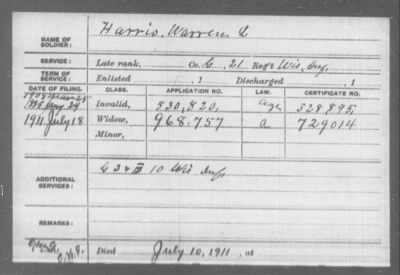 NAME OF SOLDIER: Harris, Warren L
SERVICE: Late rank, Co. G, 21 Reg't Wis. Inf.
TERM OF SERVICE: Enlisted , 1 Discharged , 1
DATE OF FILING. CLASS. APPLICATION NO. LAW. CERTIFICATE NO.
Invalid, 530,820, age 328,895,
1911 July 18 Widow, 968.757 a 729014
Minor,
ADDITIONAL SERVICES: 10 Wis Inf
REMARKS:
Died July 10, 1911, at